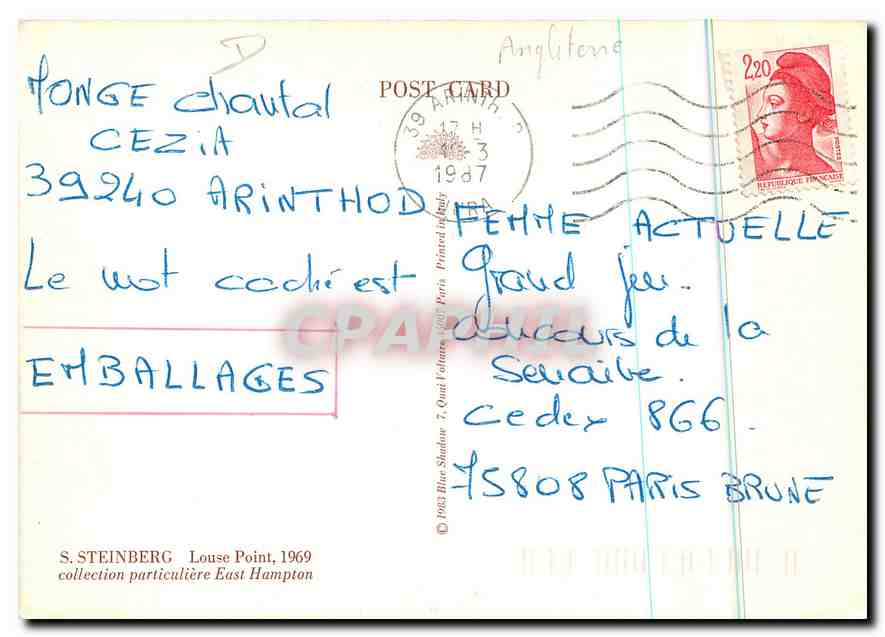 D
Angleterre
POST CARD
MONGE Chantal
CEZIA
39240 ARINTHOD
Le mot caché est
EMBALLAGES
39 ARINTH
17 H
3
1987
JURA
2,20
POSTES
REPUBLIQUE FRANCAISE
FEMME ACTUELLE
Grand jeu.
Concours de la
Semaine.
Cedex 866.
75808 PARIS BRUNE
© 1983 Blue Shadow 7, Quai Voltaire 75007 Paris Printed in Italy
CPAPHIL
S. STEINBERG Louse Point, 1969
collection particulière East Hampton